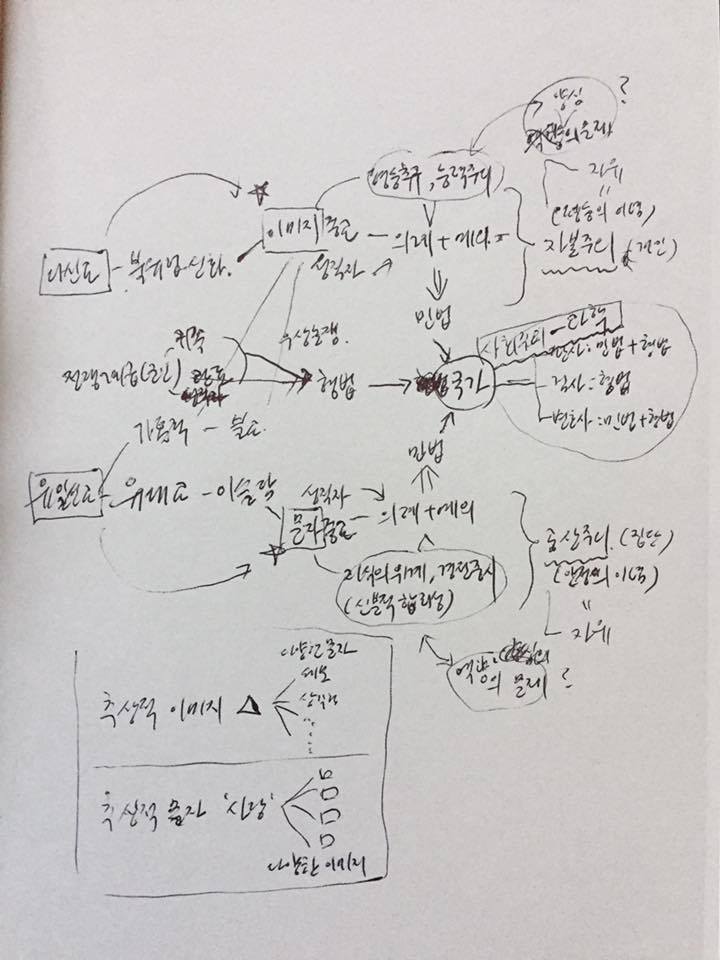 양심
?
의 문제
영웅추구, 능력주의
자유
=
(평등의 이념)
이미지 종교 - 의례 + 예의 =
자본주의 (개인)
다신교 - 북유럽 신화.
성직자
민법
우상논쟁.
귀족
사회주의 - 과학
판사: 민법 + 형법
전쟁계급(군인)
형법
국가
검사: 형법
변호사: 민법 + 형법
가톨릭 - 불교.
민법
유일신교 - 유대교 - 이슬람
성직자
문자 종교 - 의례 + 예의
공산주의. (집단)
지식의 위계, 경전중시
(신분적 합리성)
(평등의 이념)
=
자유
역량
의 문제
?
다양한 문자
세모
삼각형
추상적 이미지 △
추상적 문자 '사랑'
ㅁ
ㅁ
ㅁ
ㅁ
다양한 이미지